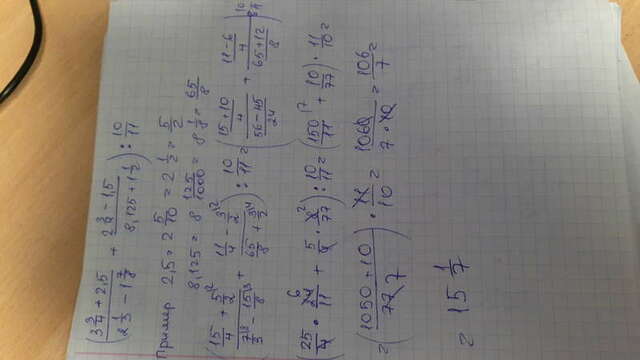 (3 3/4 + 2,5 / 2 1/3 - 1 7/8 + 2 3/4 - 1,5 / 8,125 + 1 1/2) : 10/11
Пример 2,5 = 2 5/10 = 2 1/2 = 5/2
8,125 = 8 125/1000 = 8 1/8 = 65/8
(15/4 + 5/2 \2 / 7/3 \8 - 15/8 \3 + 11/4 - 3/2 \2 / 65/8 + 3/2 \4) : 10/11 = (15+10/4 / 56-45/24 + 11-6/4 / 65+12/8) : 10/11
(25/4 · 24 6/11 + 5/4 · 8 2/77) : 10/11 = (150/11 \7 + 10/77) · 11/10 =
= (1050 + 10 / 77 7) · 11/10 = 1060/7·10 = 106/7 =
= 15 1/7